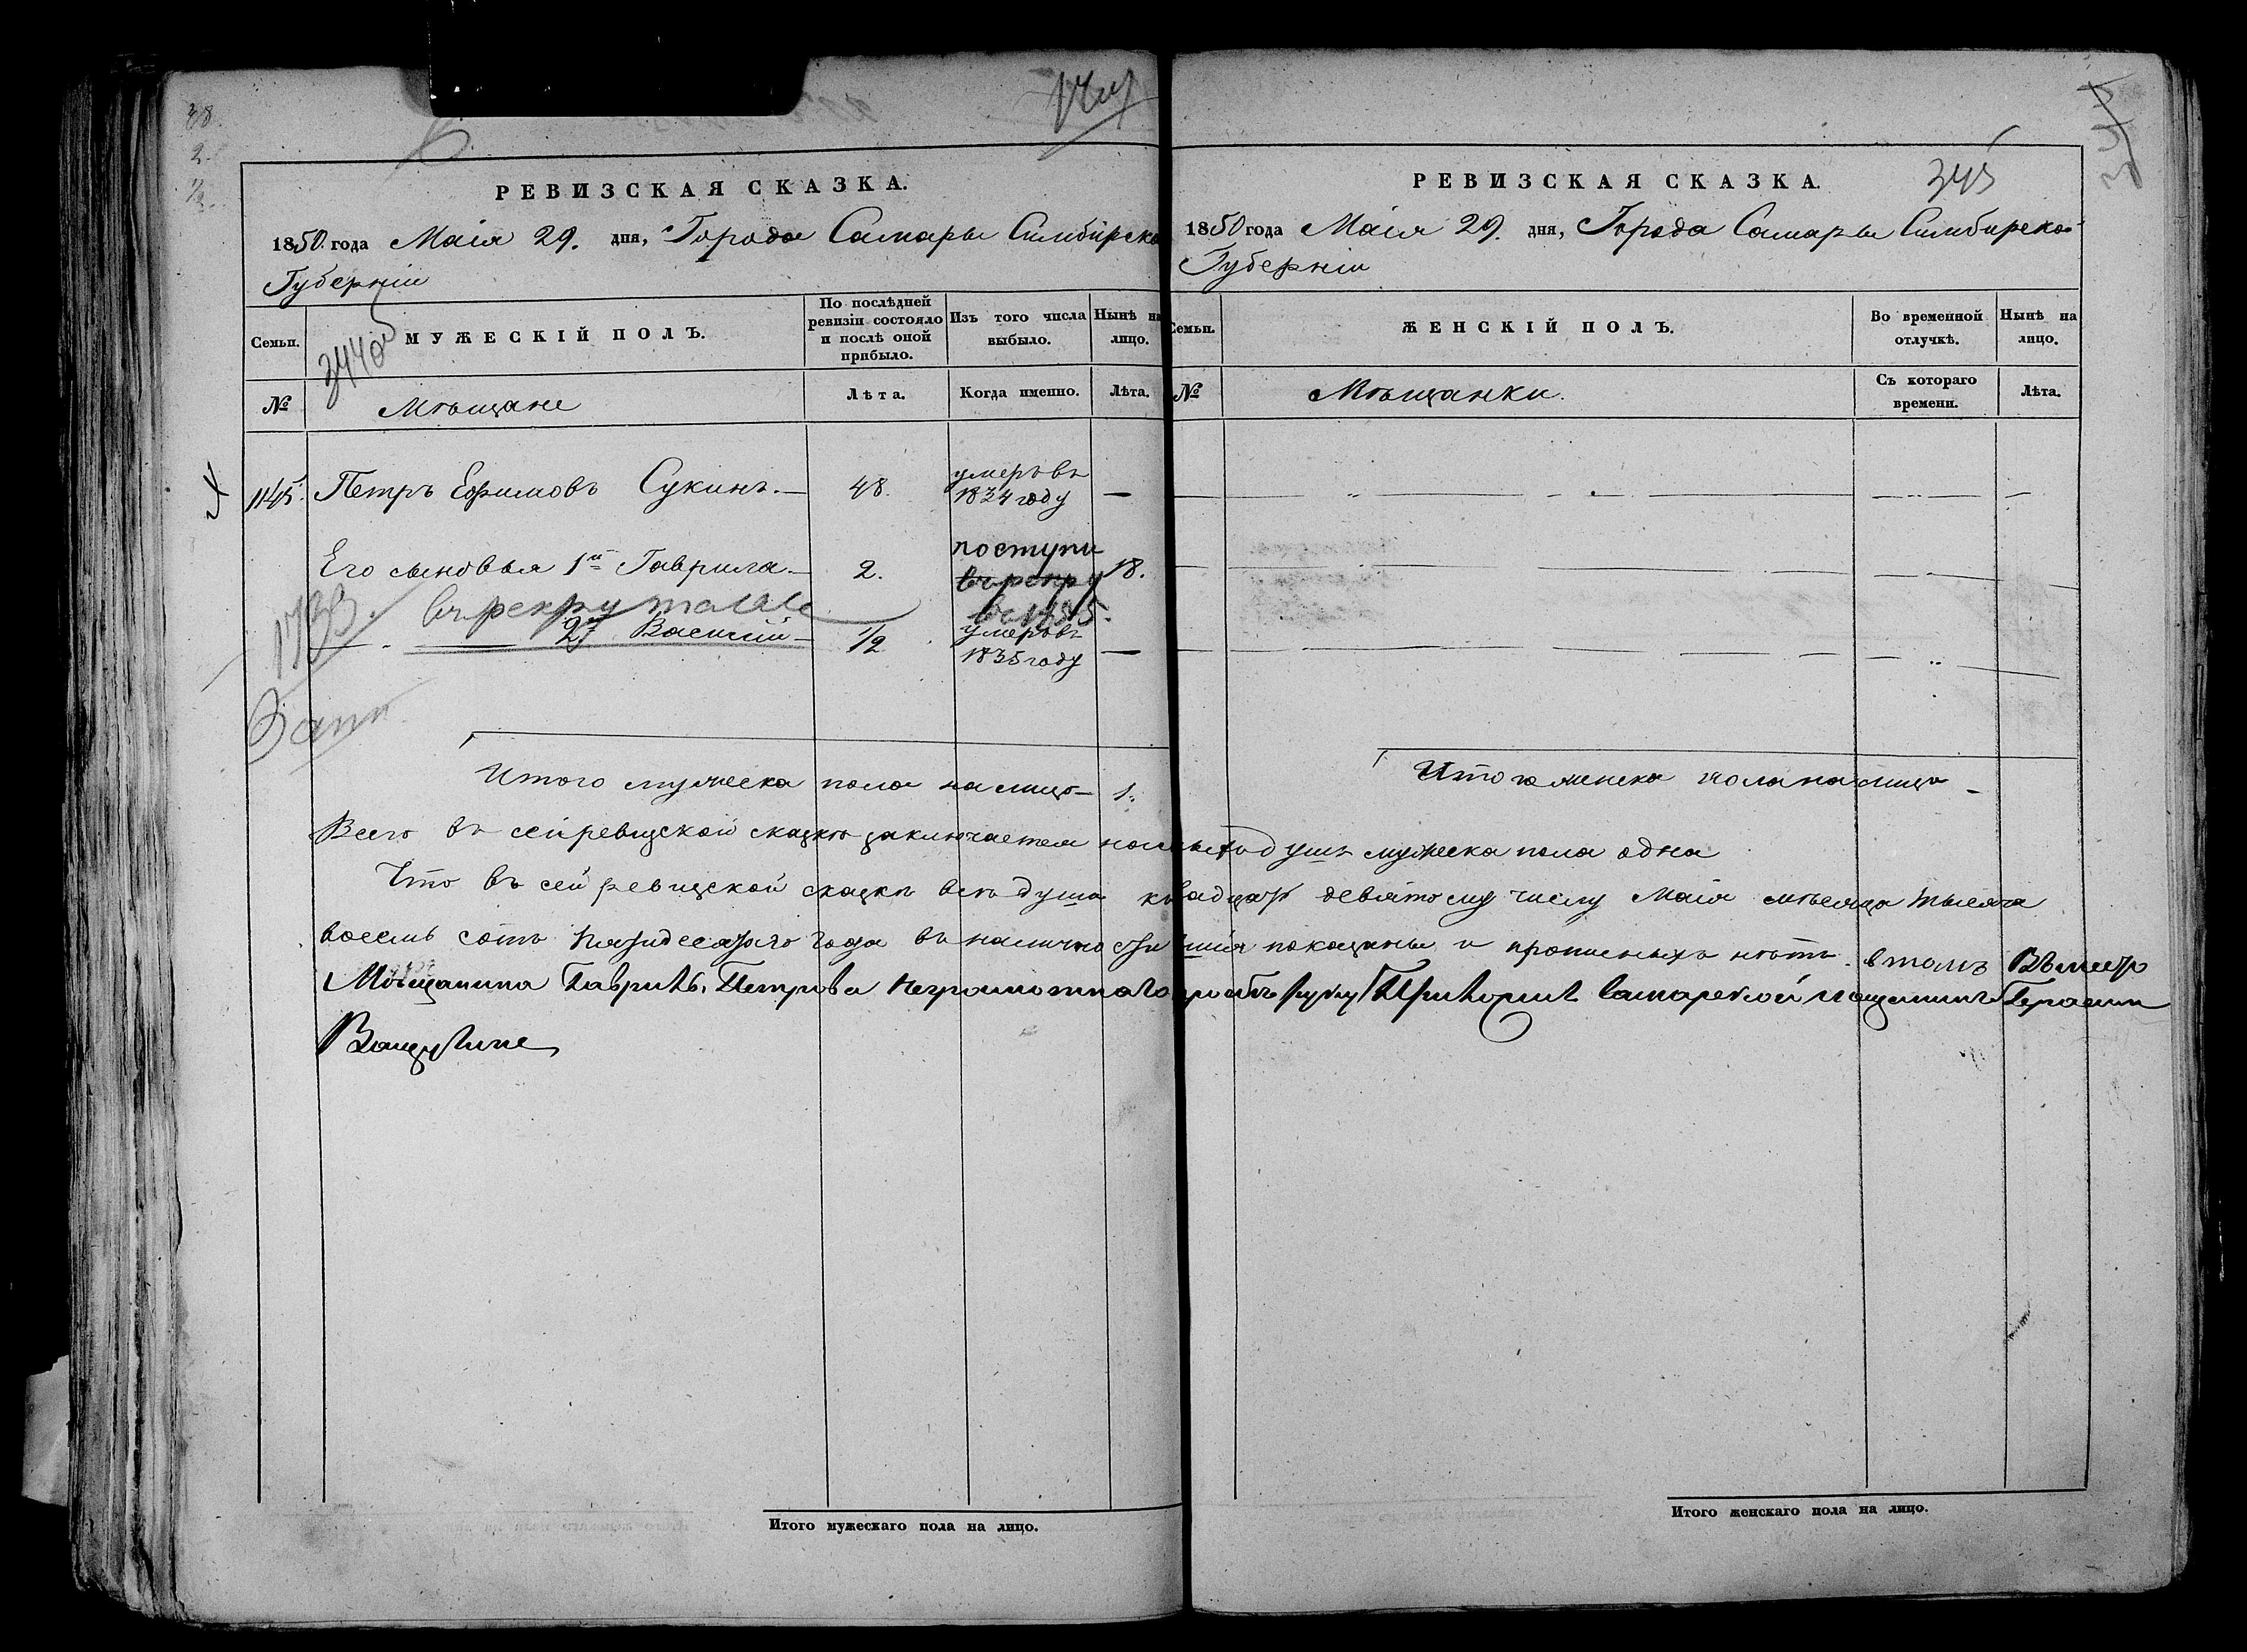 38.
2.
1/2.
РЕВИЗСКАЯ СКАЗКА.
1850 года Маія 29. дня, Города Самары Симбирско
Губерніи
Семьи.
МУЖЕСКІЙ ПОЛЪ.
По послѣдней ревизіи состояло и послѣ оной прибыло.
Изъ того числа выбыло.
Нынѣ на лицо.
№
Мѣщане
Лѣта.
Когда именно.
Лѣта.
1145. Петръ Ефимовъ Сукинъ.— 48. умеръ въ 1834 году —
Его сыновья 1й Гаврила— 2. поступи въ рекру въ 1855. 18.
въ рекруты
1733.
2й Василій— 1/2 умеръ въ 1835 году —
Итого мужеска пола на лицо— 1.
РЕВИЗСКАЯ СКАЗКА.
345
1850 года Маія 29. дня, Города Самары Симбирской
Губерніи
Семьи.
ЖЕНСКІЙ ПОЛЪ.
Во временной отлучкѣ.
Нынѣ на лицо.
№
Мѣщанки.
Съ котораго времени.
Лѣта.
Итого женска пола на лицо —
Всего въ сей ревизской сказкѣ заключается душъ мужеска пола одна
Что въ сей ревизской сказкѣ всѣ душа девятому числу Маія мѣсяца тысяча
восемь сотъ пятидесятаго года въ наличности показаны и прописныхъ нѣтъ. в томъ Вместо
Мѣщанина Гаврилы Петрова неграмотнаго руку Приложилъ Самарской мещанинъ Герасим
Итого мужескаго пола на лицо.
Итого женскаго пола на лицо.